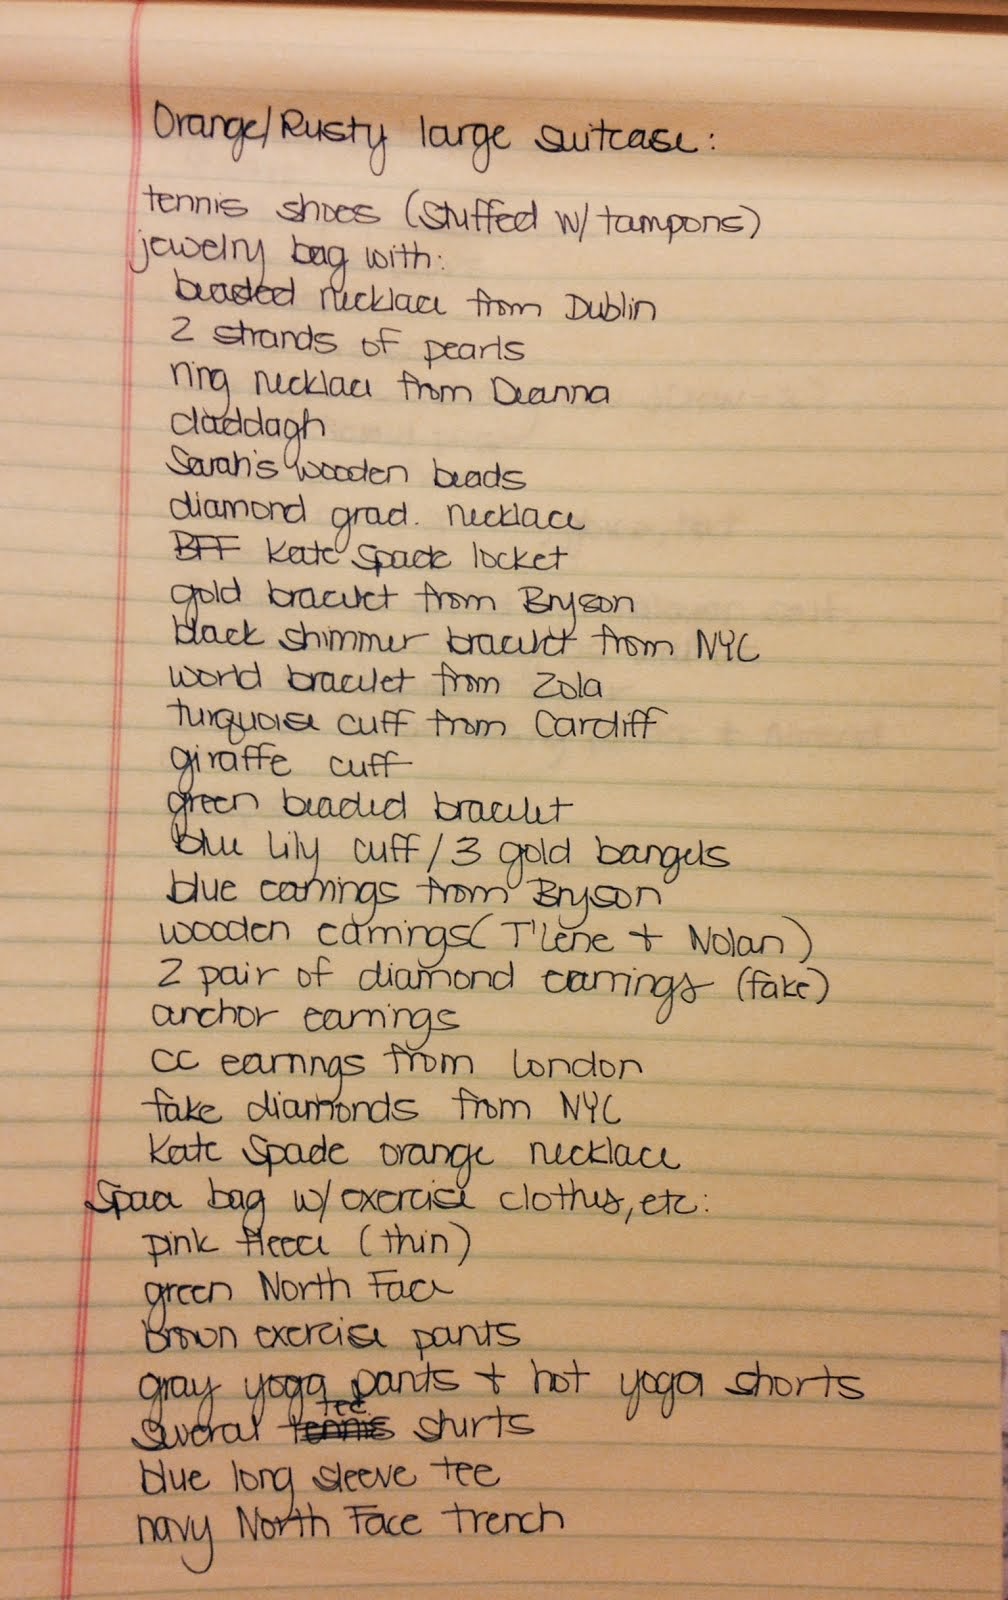 Orange/Rusty large suitcase:
tennis shoes (stuffed w/ tampons)
jewelry bag with:
beaded necklace from Dublin
2 strands of pearls
ring necklace from Deanna
claddagh
Sarah's wooden beads
diamond grad. necklace
BFF Kate Spade locket
gold bracelet from Bryson
black shimmer bracelet from NYC
world bracelet from Zola
turquoise cuff from Cardiff
giraffe cuff
green beaded bracelet
blue Lily cuff/3 gold bangels
blue earrings from Bryson
wooden earrings (T'Lene + Nolan)
2 pair of diamond earrings (fake)
anchor earrings
CC earrings from London
fake diamonds from NYC
Kate Spade orange necklace
Spaa bag w/ exercise clothes, etc:
pink fleece (thin)
green North Face
brown exercise pants
gray yoga pants + hot yoga shorts
several tee shirts
blue long sleeve tee
navy North Face trench